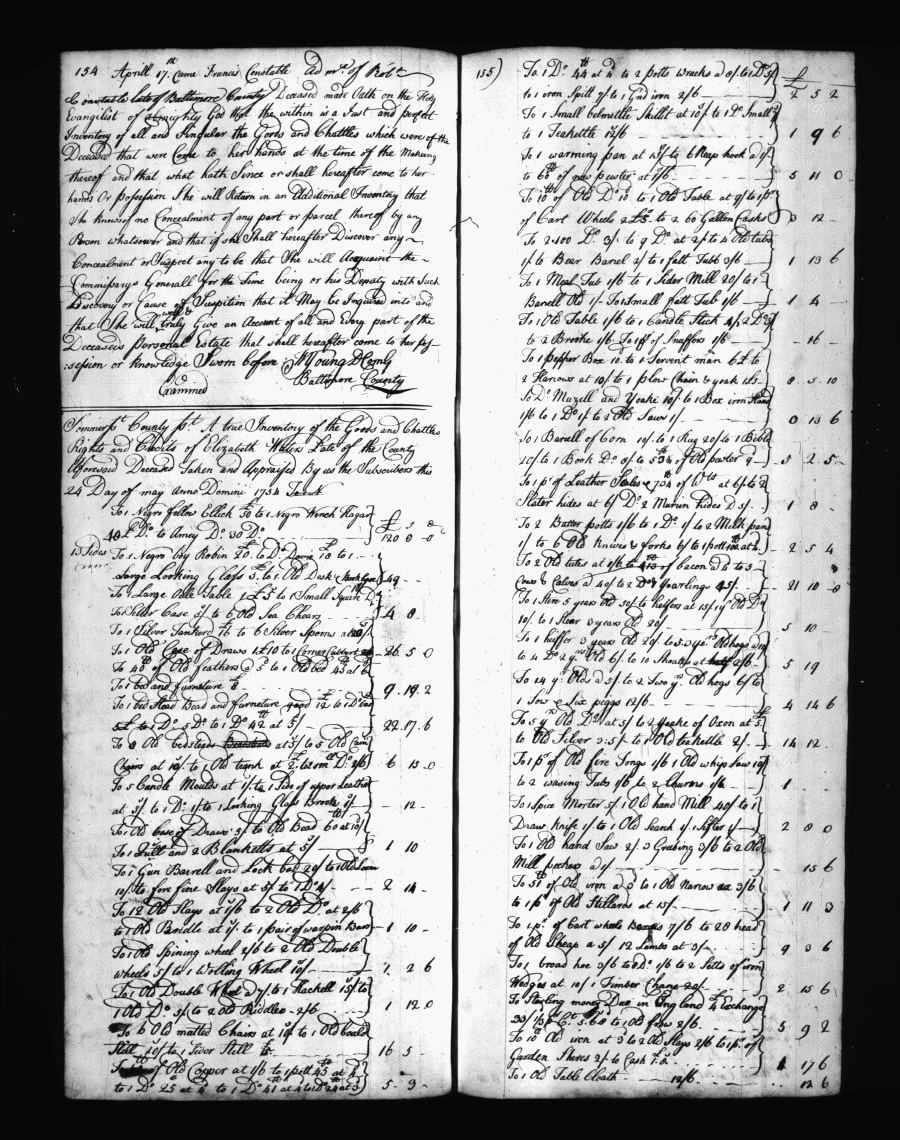 154 Aprill 17th Came Francis Constable Admrx of Robt
Constable late of Baltimore County Deceased made Oath on the Holy
Evangilist of Almighty God that the within is a Just and perfect
Inventory of all and Singular the Goods and Chattles which were of the
Deceased that were Come to her hands at the time of the Making
thereof and that what hath Since or shall hereafter come to her
hands Or Possession She will Return in an Additional Inventory that
She knows of no Concealment of any part or parcel thereof by any
Person whatsoever and that if she Shall hereafter Discover any
Concealment or Suspect any to be that She will Acquaint the
Commissary Generall for the Time being or his Deputy with Such
Discovery or Cause of Suspition that it May be Inquired into and
that She will well & truly Give an Account of all and Every part of the
Deceaseds Personal Estate that shall hereafter come to her pos-
:session or knowledge Sworn before W Young D Comy
Examined Baltimore County
Sommerst County st A true Inventory of the Goods and Chattles
Rights and Credits of Elizabeth Waters Late of the County
Aforesaid Deceased Taken and Appraised By us the Subscribers this
24 Day of may Anno Domini 1754
To 1 Negro fellow 50 to 1 Negro Wench Hagar
40£ Do to Amey Do 30 Do 120 0 0
To 1 Negro Boy Robin 20. to Do 10 to 1
Large Looking Glass 3. to 1 Old Desk & 49 -
To 1 Large Oak Table 1£5 to 1 Small Square Do
Case 5/ to 6 Old Sea Chears 4 8
To 1 Silver Tankerd to 6 Silver Spoons a 120/
To 1 Old Case of Draws 1£10 to 1 Corner Cubbert 26 5 0
To 48lb of Old feathers a to 1 Old bed 43 at 6
To 1 bed and furneture 8 9. 19. 2
To 1 bed Stead Bead and furneture good 12 to 1 Do
5£ to Do 5 Do to 1 Do 42 at 5/ 22. 17. 6
To 8 Old bedsteds at 5/ to 5 Old Cain
Chairs at 10/ to 1 Old trunk at 2/. Do 2/6 6 13 0
To 5 Candle Moulds at 1/. to 1 Side of upper Leather
at 5/ to 1 Do 1/ to 1 Looking Glass Broote - 12 -
To 1 Old Case of Draws 5/ to Old Bead 60 at 10/
To 1 Quilt and 2 Blanketts at 5/ 1 10
To 1 Gun Barell and Lock bad 20/ to 1 Old Loom
10/ to fore fine Slays at 5/ to 1 Do 4/ 2 14 -
To 12 Old Slays at 1/6 to 2 Old Do at 2/6
to 1 Old Bridle at 1/. to 1 pair of warpin Bars 1 10 -
To 1 Old Spining wheel 2/6 to 2 Old Double
wheels 5/ to 1 Wolling Wheel 10/ 1. 2 6
To 1 Old Double Wheel a 7/ to 1 Hackell 15/ to
1 Old Do 5/ to 2 Old Riddles 2/6 1 12 0
To 6 Old matted Chairs at 10/ to 1 Old
Still 40/ to 1 Sider Still 16 5
of Old Copper at 1/6 to 1 pott 45 at 4
to 1 Do 25 at 4 to 1 Do 41 at 4 to 1 Do 24 at 3 5 3
155) To 1 Do 44 at 4 to 2 potts wracks a 8/ to 1 Do 5/
to 1 iron Spitt 7/ to 1 Grid iron 2/6 2 5 2
To 1 Small belmettle Skillit at 10/ to 1 Do Small 7/
to 1 Teakettle 12/6 1 9 6
To 1 warming pan at 15/ to 6 Reap hook a 1/
to 60lb of new pewter at 1/6 5 11 0
To 10 of Old Do 10 to 1 Old Table at 9/ to 1 pr
of Cart Wheels 2£5 to 2 60 Gallon Casks 3 12 -
To 2 100 Do 3/ to 9 Do at 2/ to 4 Old tubs
1/ to Bear Barrel 2/ to 1 fatt Tubb 3/6 1 13 6
To 1 Meal Tub 1/6 to 1 Sider Mill 20/ to 1
Barell Old 1/- To 1 Small fatt Tub 1/6 1 4 -
To 1 Old Table 1/6 to 1 Candle Stick 4/ 2 Do
to 2 Brooke 1/6 To 1 pr of Snuffers 1/6 - 16 -
To 1 pepper Box 10. to 1 Servent man 6£ to
2 Harrows at 10/ to 1 plow Chain & yoak 8. 5. 10
To Do Muzell and Yoake 10/ to 1 Box iron
1/6 to 1 Do 1/ to 2 Old Saws 1/ 0 13 6
To 1 Barell of Corn 10/ to 1 Rug 20/ to 1 Bible
10/ to 1 Book Do 8/ to 53lb of Old pewter 9 5 2 5 -
To 1 pr of Leather Scales & 7lb 4 of Wts at 6/ to 2
Slater hides at 6/ Do 2 Murin hides D 5/ 1 8 -
To 2 Butter potts 1/6 to 1 Do 1/ to 2 Milk pan
1/ to 6 Old knives & forks 6/ to 1 pott 2 5 4
To 2 Old tubs at 1/6 to of bacon a 6 to 5
Cows & Calves a 40/ to 2 Do & Yearlings 45/ 21 10 0
To 1 Steer 5 years old 50/ to heffers at 15/ 1 yr Old Do
10/ to 1 Stear 3 years Old 20/ 5 10
To 1 heiffer 3 years Old 20/ to 5 3 yr Old hogs a
to 4 Do 2 yr Old 6/- to 10 Shoats at 2/6 5 19
To 14 yr Olds a 5/ to 2 Two yr Old hogs 6/ to
1 Sow & Six piggs 12/6 4 14 6
To 5 yr Old Do at 5/ to 2 Yoake of Oxon at
to Old Silver 3:5/ to 1 Old teakettle 2/ 14 12 -
To 1 pr of Old fire Tongs 1/6 1 Old whip Saw 10/
to 2 wasing Tubs 1/6 to 2 Churns 1/6 1
To 1 Spice Morter 5/ 1 Old hand Mill 40/ to 1
Draw knife 1/ to 1 Old Search 1/ 1 Sifter 1/ 2 8 0
To 1 Old hand Saw 2/. 3 Grubing 3/6 to 2 Old
Mill peckers a 9/ 15 6
To 51lb of Old iron a 3 to 1 Old Narow ax 3/6
to 1 pr of Old Stillards at 15/ 1 11 3
To 1 pr of Cart wheels Boxes 7/6 to 28 head
of Old Sheap a 5/ 12 Lambs at 3/ 9 3 6
To 1 broad hoe 3/6 to Do 1/6 to 2 Setts of iron
Wedges at 10/ 1 Timber Chane 20/ 2 15 6
To Sterling money Due in England & Exchange
33/ 5.6.0 to 1 Old 2/6 5 9 2
To 10lb Old iron at 3 to 2 Old Slays 2/6 to 1 pr of
Garden Sheres 2/ to Cash 1 17 6
To 1 Old Table Cloath 12/6 12 6